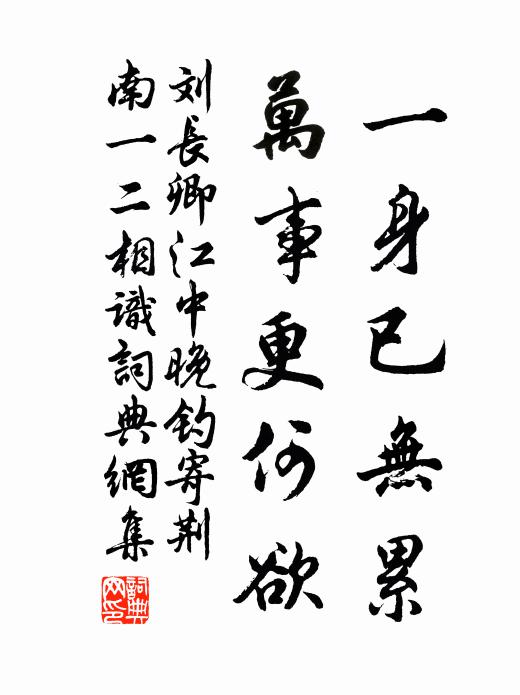 一身已無累
萬事更何欲
刘長卿江中晚釣寄荆
南一二相識詞典網集
詞典网印